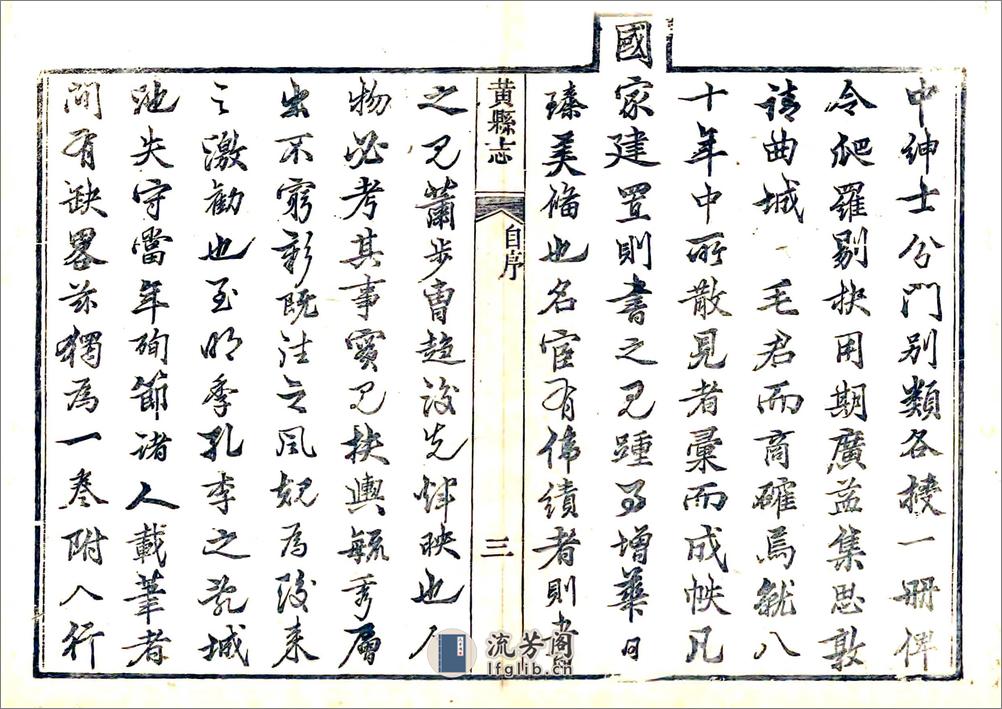 中紳士分門别類各授一冊俾
令爬羅剔抉用期廣益集思敦
請曲城 毛君而商確焉就八
十年中所散見者彙而成帙凡
國家建置則書之見踵事增華日
臻美備也名宦有偉績者則書
黃縣志 自序 三
之見蕭步曹趨後先輝映也人
物必考其事實見扶輿毓秀層
出不窮彰既往之風規為後來
之激勸也至明季孔李之亂城
池失守當年殉節諸人載筆者
間有缺畧茲獨為一卷附入行
流芳阁
lfglib.cn